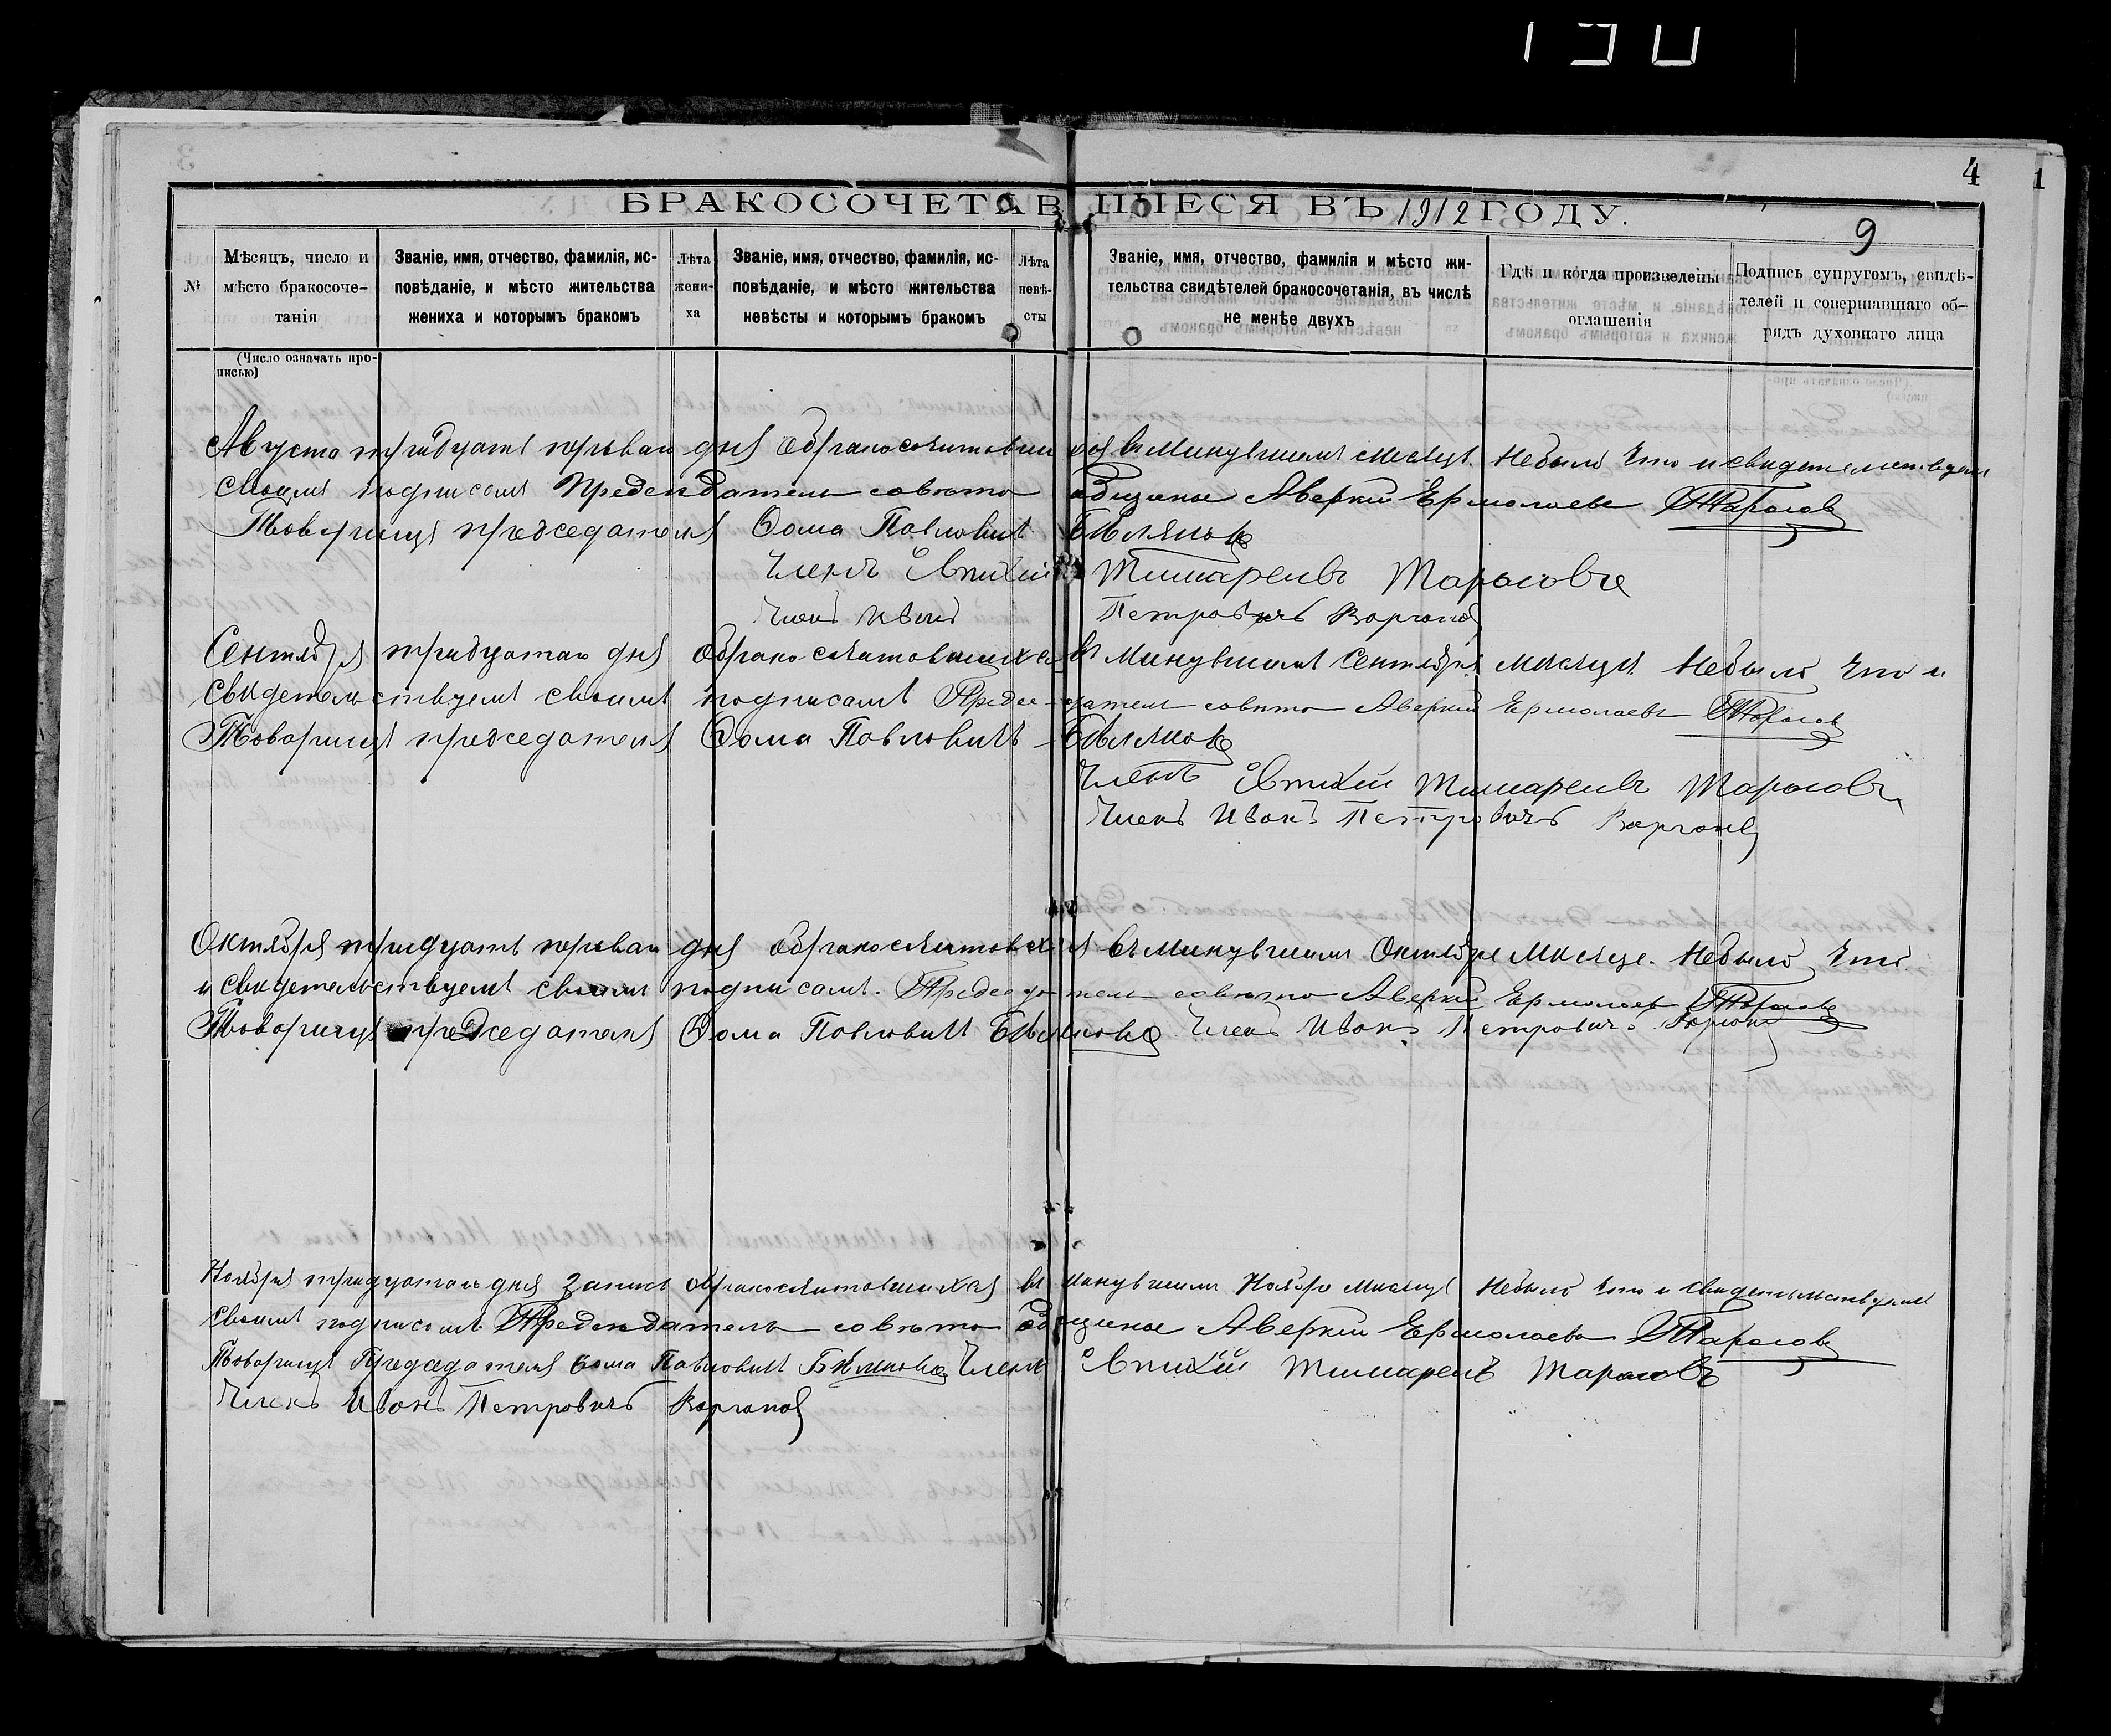 190
4 1
БРАКОСОЧЕТАВШIЕСЯ ВЪ 1912 ГОДУ.
9
№
Мѣсяцъ, число и
мѣсто бракосоче-
танiя
Званiе, имя, отчество, фамилiя, ис-
повѣданiе, и мѣсто жительства
жениха и которымъ бракомъ
Лѣта
жени-
ха
Званiе, имя, отчество, фамилiя, ис-
повѣданiе, и мѣсто жительства
невѣсты и которымъ бракомъ
Лѣта
невѣ-
сты
Званiе, имя, отчество, фамилiя и мѣсто жи-
тельства свидѣтелей бракосочетанiя, въ числѣ
не менѣе двухъ
Гдѣ и когда произведены
оглашенiя
Подпись супругомъ, свидѣ-
телей и совершавшаго об-
рядъ духовнаго лица
(Число означать про-
писью)
Августа тридцать перваго дня обракосочитавши хся въ минувшемъ месяце Небыло Что и свидетелствуемъ
своимъ подписамъ Председатель совета общины Аверкий Ермолаевъ Тарасов
Товарищъ председателя Ѳома Павловичъ Бѣляков
Членъ Евтихий Тимареивъ Тарасовъ
Членъ Иванъ Петровичъ
Сентября тридцатаго дня обракосочитавшихся въ минувшемъ Сентябре месяце Небыло Что и
свидетельствуемъ своимъ подписамъ Председатель совета Аверкий Ермолаевъ Тарасов
Товарищъ председателя Ѳома Павловичъ Бѣляков
Членъ Евтихий Тимареивъ Тарасовъ
Членъ Иванъ Петровичъ
Октября тридцать перваго дня обракосочитавшихся въ минувшемъ Октябре месяце. Небыло Что
и свидетельствуемъ своимъ подписамъ. Председатель совета Аверкий Ермолаевъ Тарасов
Товарищъ председателя Ѳома Павловичъ Бѣляковъ Членъ Иванъ Петровичъ
Ноября тридцатаго дня Запись обракосочитавшихся въ минувшемъ Ноябре месяце Небыло Что и свидетельствуемъ
своимъ подписамъ. Председатель совета общины Аверкий Ермолаевъ Тарасов
Товарищъ Председателя Ѳома Павловичъ Бѣляковъ Членъ Евтихий Тимареивъ Тарасовъ
Членъ Иванъ Петровичъ